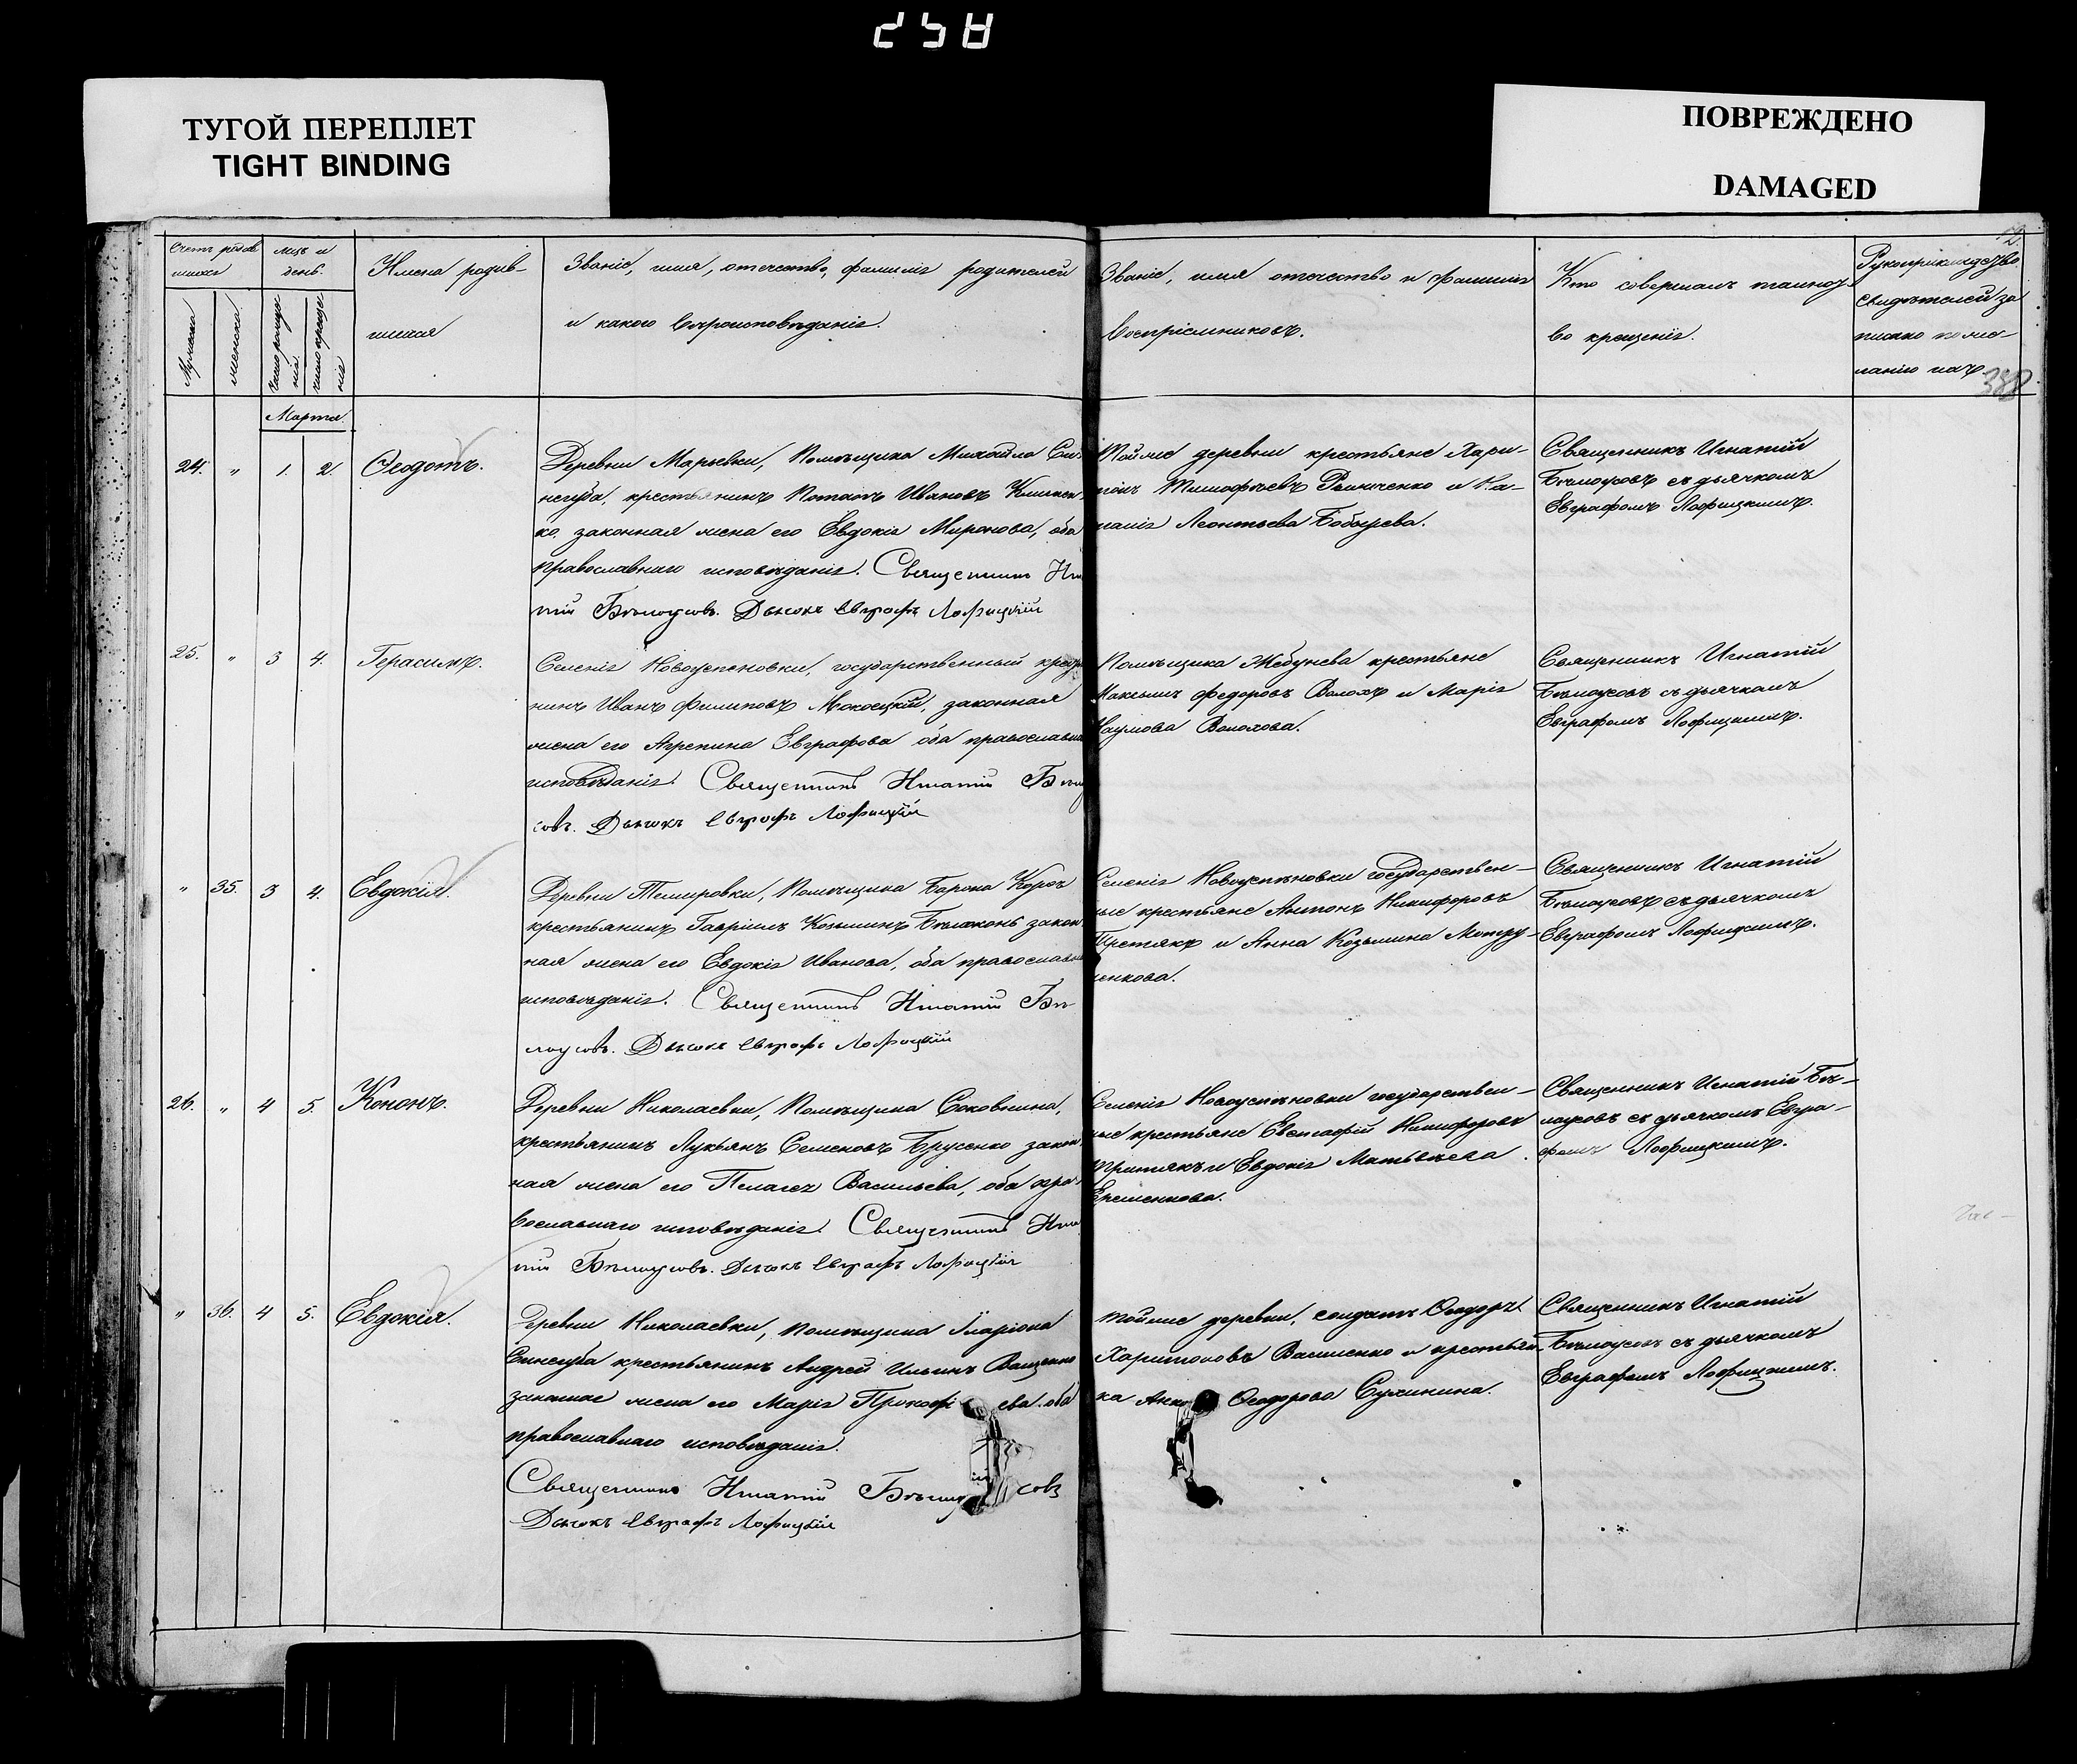 258
ТУГОЙ ПЕРЕПЛЕТ
TIGHT BINDING
ПОВРЕЖДЕНО
DAMAGED
Счетъ родив
шихся
Мужеска
женска
мцъ и
день.
число рожде
нія
число креще
нія
Имена родив-
шихся
Званіе, имя, отечество, фамилія родителей
и какого вѣроисповѣданія.
Званіе, имя отечество и фамилія
воспріемниковъ.
Кто совершалъ таинст
во крещенія.
Рукоприкладство
свидѣтелей за
писью по же-
ланію ихъ
388
Марта
24. " 1. 2. Ѳеодотъ.
Деревни Марьевки, Помѣщика Михайла Си-
негуба, крестьянинъ Потапъ Ивановъ
ко, законная жена его Евдокія Миронова, оба
православнаго исповѣданія. Священникъ Игна
тій Бѣлоусовъ. Дьячокъ Евграфъ Лофицкій
Тойже деревни крестьяне Хари-
тонъ Тимофѣевъ и
Леонтьева Бобырева.
Священникъ Игнатій
Бѣлоусовъ съ дьячкомъ
Евграфомъ Лофицкимъ.
25. " 3 4. Герасимъ.
Селенія Новоуспеновки, государственный крестья
нинъ Иванъ Филиповъ Мокоецкій, законная
жена его Агрепина Евграфова оба православна
исповѣданія. Священникъ Игнатій Бѣлоу
совъ. Дьячокъ Евграфъ Лофицкій
Помѣщика крестьяне
Максимъ Федоровъ Волохъ и Марія
Наумова Волохова.
Священникъ Игнатій
Бѣлоусовъ съ дьячкомъ
Евграфомъ Лофицкимъ.
" 35. 3 4. Евдокія.
Деревни Темировки, Помѣщика Барона Корфъ
крестьянинъ Гавріилъ Козьминъ Бѣлоконь закон
ная жена его Евдокія Иванова, оба православна
исповѣданія. Священникъ Игнатій Бѣ-
лоусовъ. Дьячокъ Евграфъ Лофицкій
Селенія Новоуспѣновки государствен-
ные крестьяне Антонъ Никифоровъ
Притякъ и Анна Козьмина
Священникъ Игнатій
Бѣлоусовъ съ дьячкомъ
Евграфомъ Лофицкимъ.
26. " 4 5. Кононъ.
Деревни Николаевки, Помѣщика Соковнина,
крестьянинъ Лукьянъ Семеновъ Брусенко закон
ная жена его Пелагея Васильева, оба пра-
вославнаго исповѣданія. Священникъ Игна
тій Бѣлоусовъ. Дьячокъ Евграфъ Лофицкій
Селенія Новоуспѣновки государствен-
ные крестьяне Евстафій Никифоровъ
Притякъ и Евдокія Матвѣева
Еременкова.
Священникъ Игнатій Бѣ-
лоусовъ съ дьячкомъ Евгра-
фомъ Лофицкимъ.
" 36. 4 5. Евдокія.
Деревни Николаевки, Помѣщика Иларіона
Синегуба крестьянинъ Андрей Ильинъ Ващенко
законная жена его Марія Прокофіева. оба
православнаго исповѣданія.
Священникъ Игнатій Бѣлоусовъ
Дьячокъ Евграфъ Лофицкій
Тойже деревни, солдатъ Ѳеодоръ
Харитоновъ Василенко и крестьян-
ка Анна Ѳеодорова Сухинина.
Священникъ Игнатій
Бѣлоусовъ съ дьячкомъ
Евграфомъ Лофицкимъ.